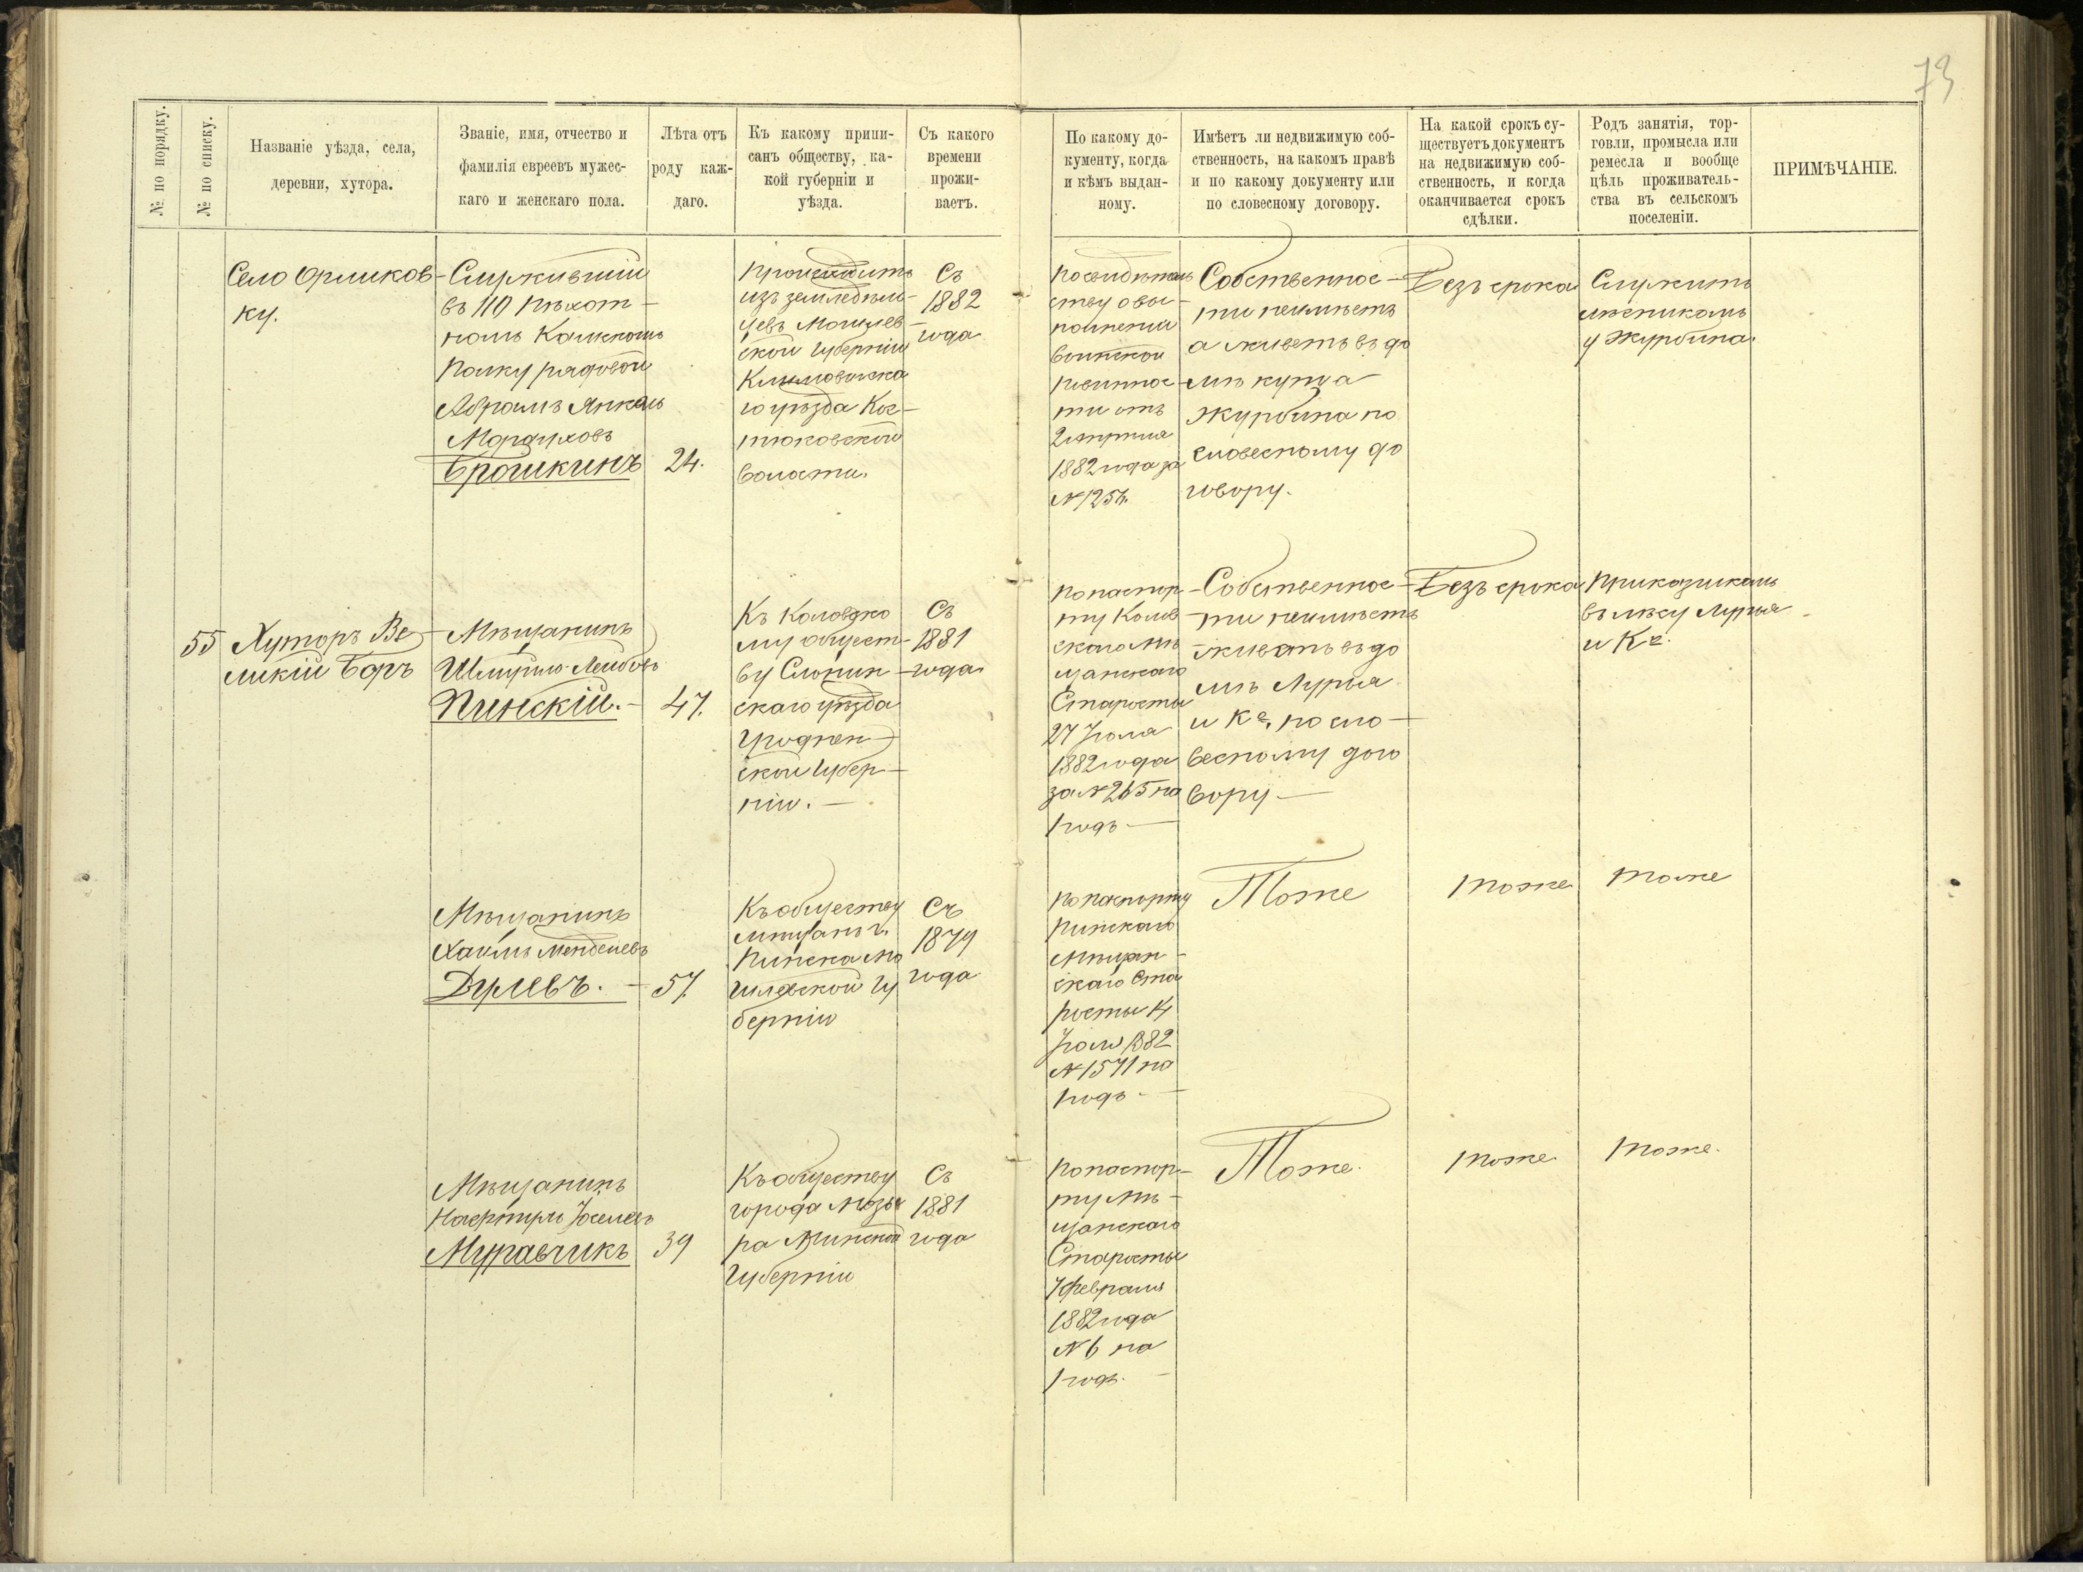 73
№ по порядку.
№ по списку.
Названіе уѣзда, села,
деревни, хутора.
Званіе, имя, отчество и
фамилія евреевъ мужес-
каго и женскаго пола.
Лѣта отъ
роду каж-
даго.
Къ какому припи-
санъ обществу, ка-
кой губерніи и
уѣзда.
Съ какого
времени
прожи-
ваетъ.
По какому до-
кументу, когда
и кѣмъ выдан-
ному.
Имѣетъ ли недвижимую соб-
ственность, на какомъ правѣ
и по какому документу или
по словесному договору.
На какой срокъ су-
ществуетъ документъ
на недвижимую соб-
ственность, и когда
оканчивается срокъ
сдѣлки.
Родъ занятія, тор-
говли, промысла или
ремесла и вообще
цѣль проживатель-
ства въ сельскомъ
поселеніи.
ПРИМѢЧАНІЕ.
Село Орликов-
ку.
Служившій
въ 110 пѣхот-
номъ Камскомъ
полку рядовой
Абрамъ Янкель
Мордуховъ
Брошкинъ
24.
Происходитъ
изъ земледѣль-
цевъ Могилев-
ской губерніи
Климовичска
го уѣзда Кос-
тюковской
волости.
Съ
1882
года
По свидѣтель
ству о вы-
полненіи
воинской
повиннос-
ти отъ
1882 года за
Собственнос-
ти неимѣетъ
а живетъ въ до
мѣ купца
Журбина по
словесному до
говору.
Безъ срока
Служитъ
лѣсникомъ
у Журбина.
55
Хуторъ Ве-
ликій Боръ
Мѣщанинъ
Шмуйло Лейбовъ
Пинскій.
47.
Къ
му общест-
ву Слоним-
скаго уѣзда
Гроднен-
ской губер-
ніи.
Съ
1881
года
По паспор-
ту
скаго мѣ
щанскаго
Старосты
27 Іюля
1882 года
за № 265 на
1 годъ
Собственнос-
ти неимѣетъ
живетъ въ до
мѣ Лурья
и Кº, по сло-
весному дого
вору
Безъ срока
Приказчикомъ
въ лѣсу Лурья
и Кº.
Мѣщанинъ
Хаимъ Менделевъ
57.
Къ обществу
мѣщанъ г.
Пинска Мо
гилевской гу
берніи
Съ
1879
года
По паспорту
Пинскаго
мѣщан-
скаго Ста
росты
Іюля 1882
№ 1571 на
1 годъ.
Тоже
тоже
тоже
Мѣщанинъ
Муравчикъ
39
Къ обществу
города Мозы
ря Минской
губерніи
Съ
1881
года
По паспор-
ту мѣ-
щанскаго
Старосты
7 февраля
1882 года
№ 6 на
1 годъ.
Тоже.
тоже
тоже.